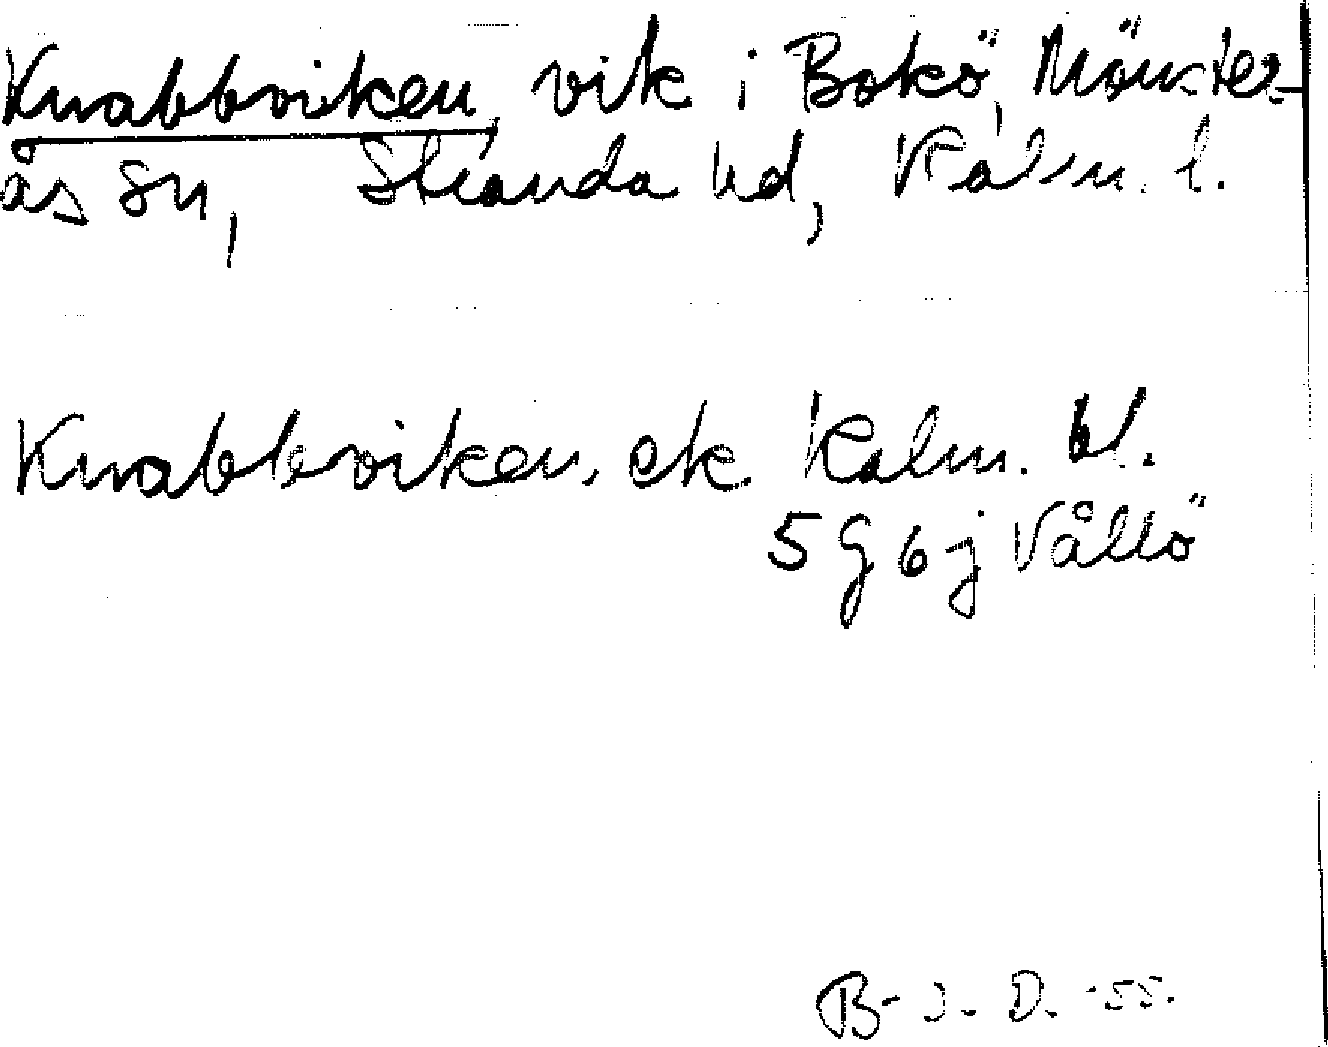 Knabbviken, vik i Bokö, Mönster-
ås sn, Stranda hd, Kalm. l.
Knabbviken, ek. Kalm. bl.
5 G 6 j Vållö
B-J. D. -55.